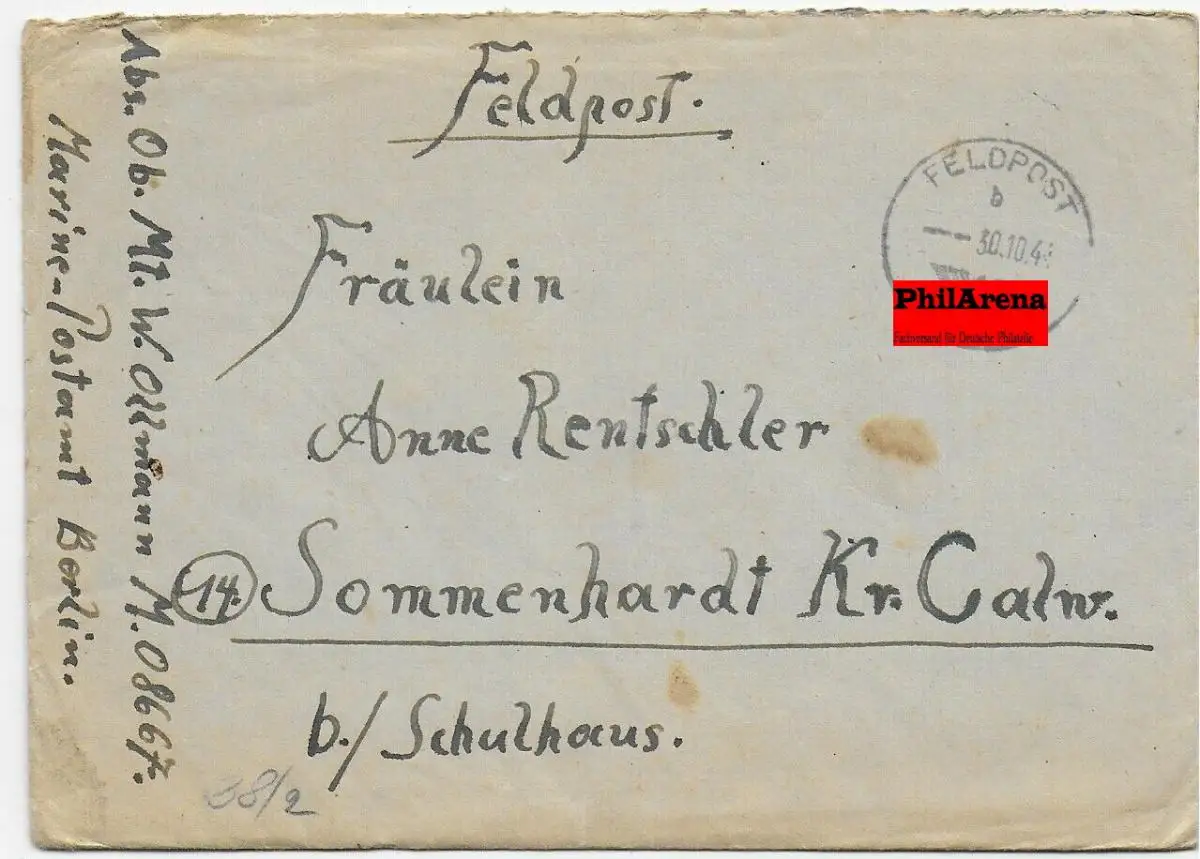 Feldpost.
FELDPOST
b
30.10.44
PhilArena
Fachversand für Deutsche Philatelie
Fräulein
Anne Rentschler
14. Sommenhardt Kr. Calw.
b./ Schulhaus.
38/2
Abs. Ob. Mt. W. Ollmann M.08667.
Marine-Postamt Berlin.